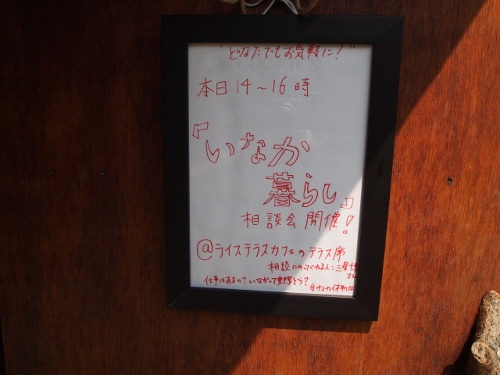 どなたでもお気軽に!
本日14〜16時
「いなか
暮らし」
相談会開催!
@ライステラスカフェのテラス席
相談にのってくれる人:三星
仕事はあるの?いなかって実際どう?